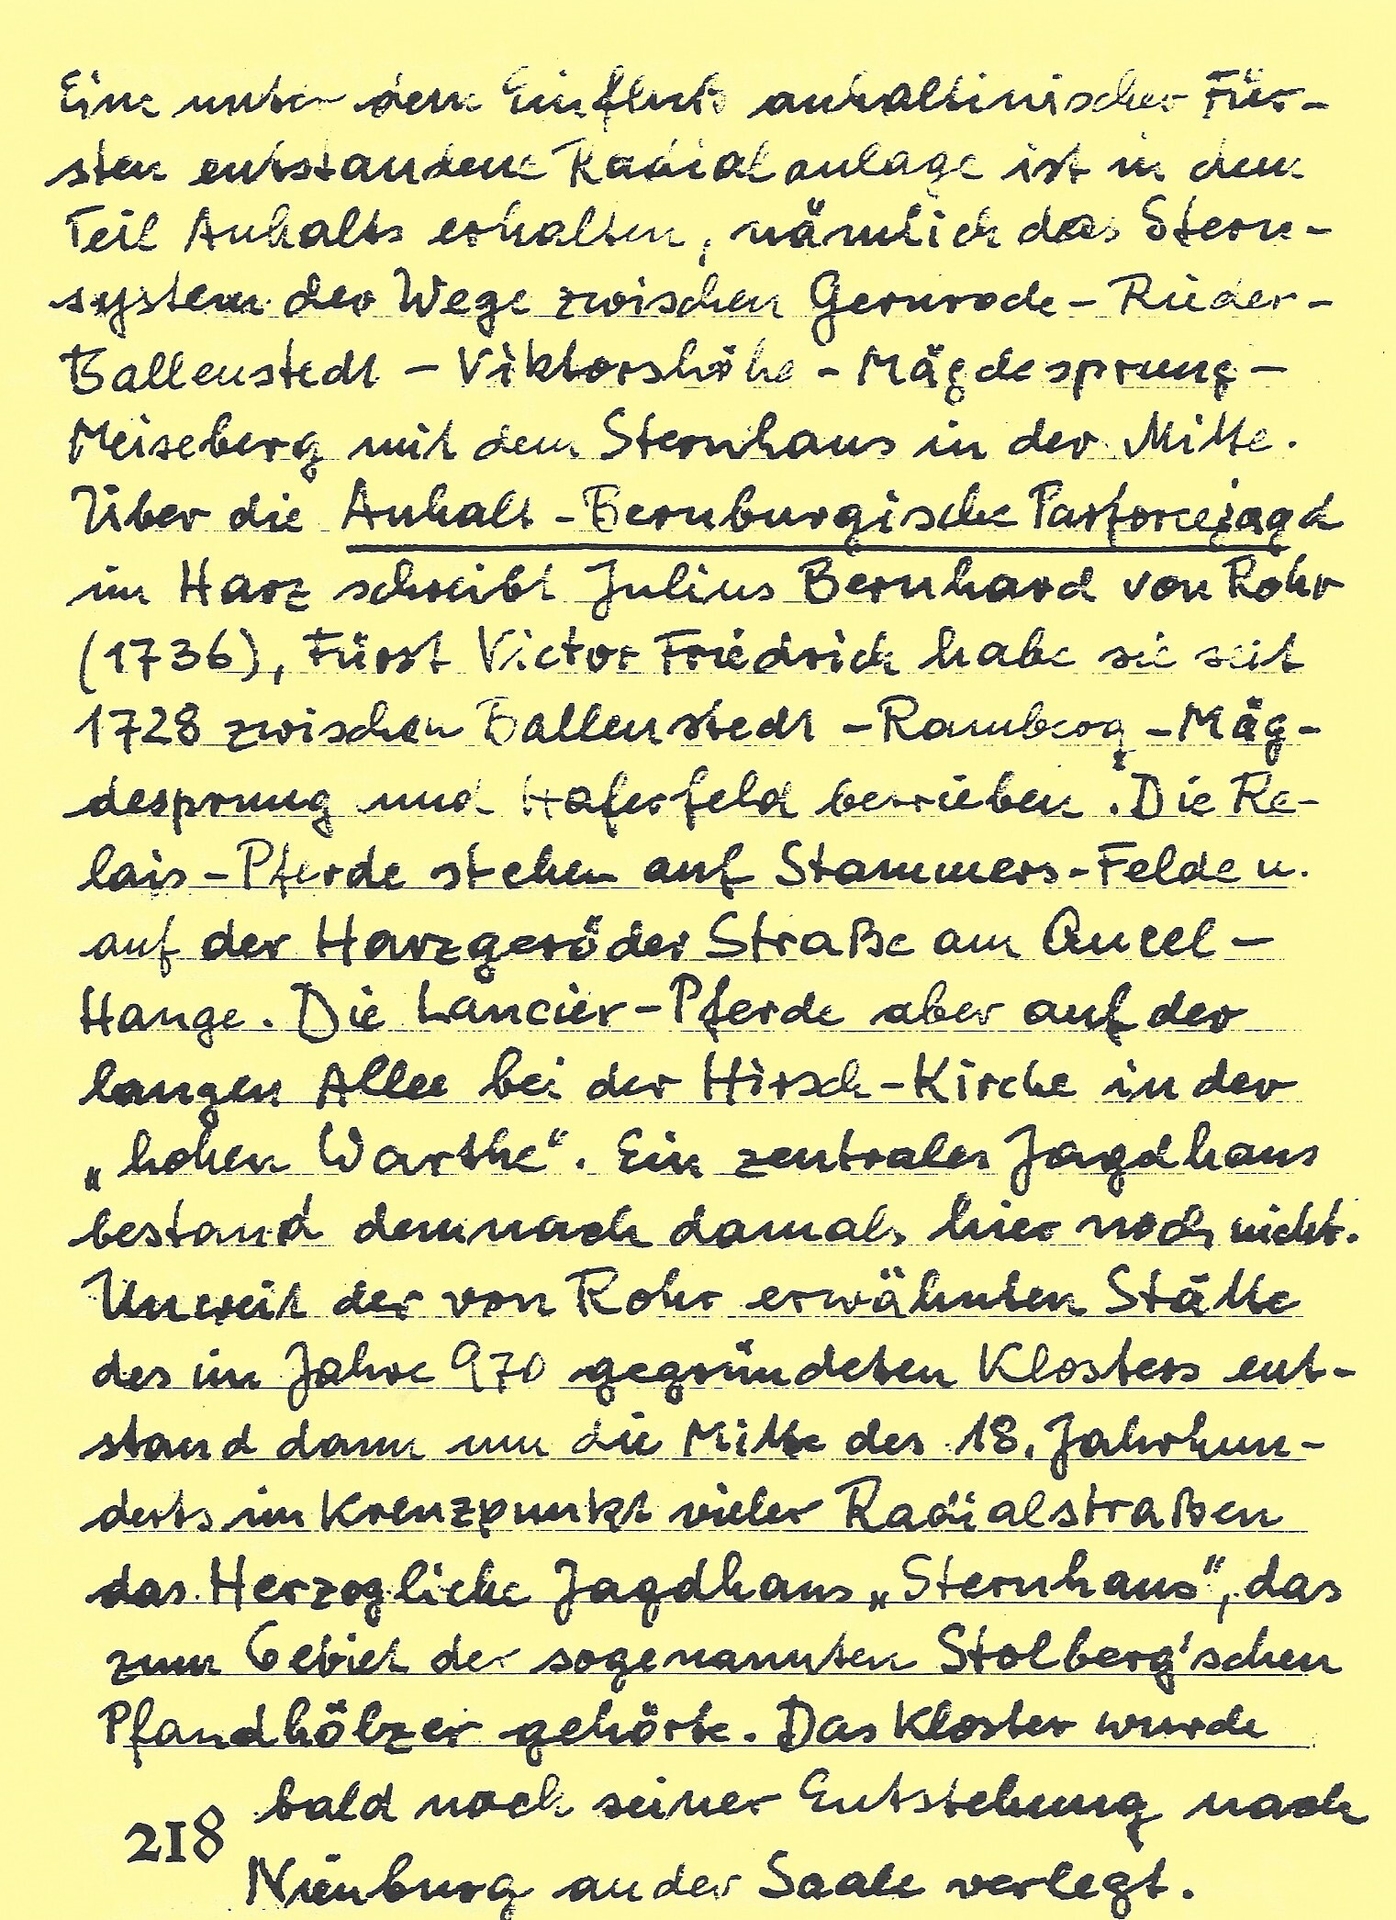 Eine unter dem Einfluß anhaltinischer Für-
sten entstandene Radialanlage ist in dem
Teil Anhalts erhalten, nämlich das Stern-
system der Wege zwischen Gernrode - Rieder -
Ballenstedt - Viktorshöhe - Mägdesprung -
Meiseberg mit dem Sternhaus in der Mitte.
Über die Anhalt - Bernburgische Parforcejagd
im Harz schreibt Julius Bernhard von Rohr
(1736), Fürst Victor Friedrich habe sie seit
1728 zwischen Ballenstedt - Ramberg - Mäg-
desprung und Haferfeld betrieben. Die Re-
lais - Pferde stehen auf Stammers - Felde u.
auf der Harzgeröder Straße am Quell -
Hange. Die Lancier - Pferde aber auf der
langen Allee bei der Hirsch - Kirche in der
„hohen Warthe“. Ein zentrales Jagdhaus
bestand demnach damals hier noch nicht.
Unweit der von Rohr erwähnten Stätte
des im Jahre 970 gegründeten Klosters ent-
stand dann um die Mitte des 18. Jahrhun-
derts im Kreuzpunkt vieler Radialstraßen
das Herzogliche Jagdhaus „Sternhaus“, das
zum Gebiet der sogenannten Stolberg'schen
Pfandhölzer gehörte. Das Kloster wurde
bald nach seiner Entstehung nach
218
Nienburg an der Saale verlegt.